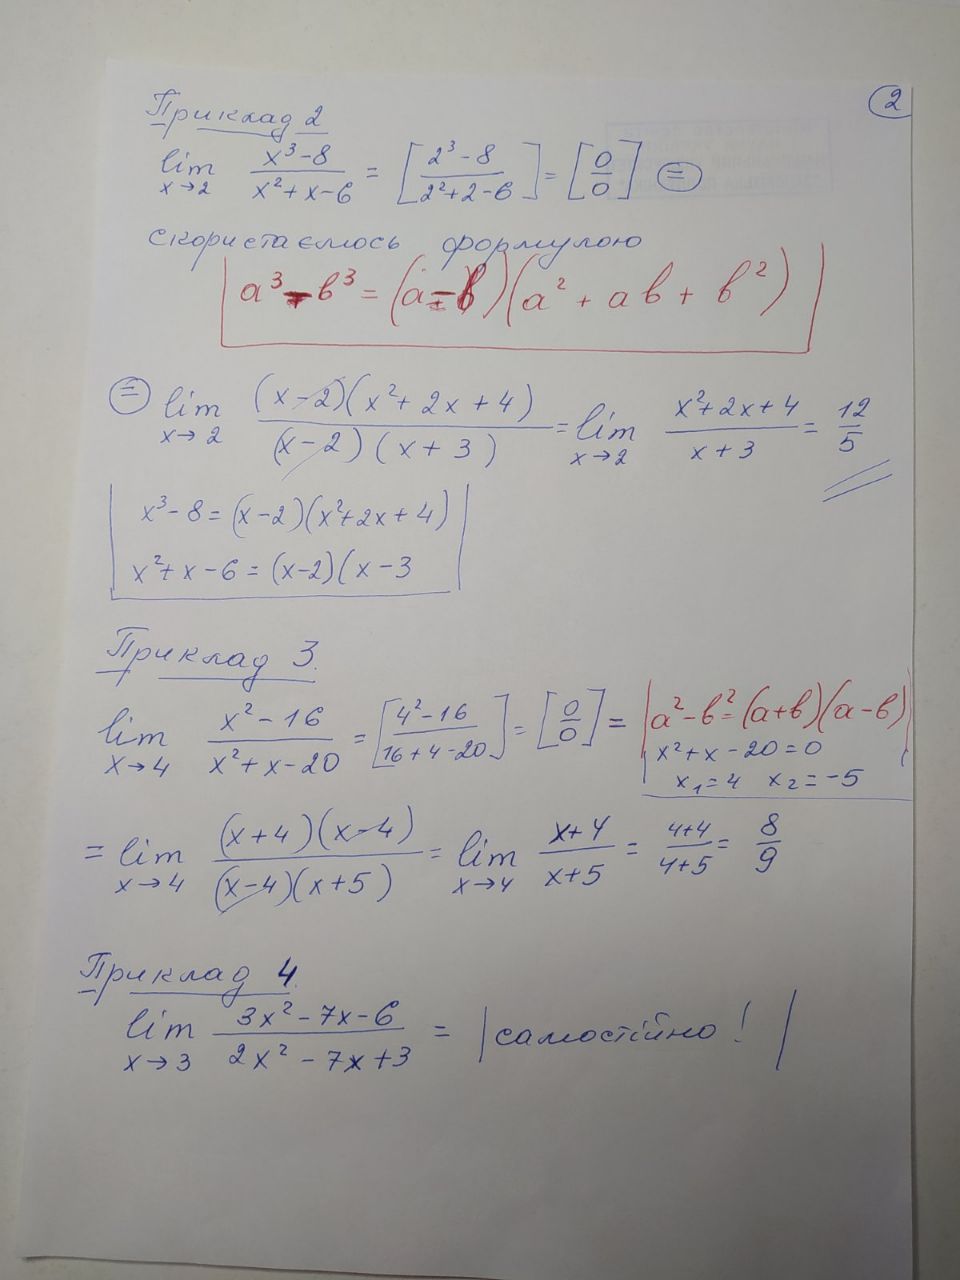 2
Приклад 2
lim x→2 (x³-8)/(x²+x-6) = [(2³-8)/(2²+2-6)] = [0/0] =
скористаємось формулою
a³-b³ = (a-b)(a²+ab+b²)
= lim x→2 ((x-2)(x²+2x+4))/((x-2)(x+3)) = lim x→2 (x²+2x+4)/(x+3) = 12/5
x³-8=(x-2)(x²+2x+4)
x²+x-6=(x-2)(x-3
Приклад 3.
lim x→4 (x²-16)/(x²+x-20) = [(4²-16)/(16+4-20)] = [0/0] = |a²-b²=(a+b)(a-b)|
x²+x-20=0
x₁=4 x₂=-5
= lim x→4 ((x+4)(x-4))/((x-4)(x+5)) = lim x→4 (x+4)/(x+5) = (4+4)/(4+5) = 8/9
Приклад 4.
lim x→3 (3x²-7x-6)/(2x²-7x+3) = |самостійно! |